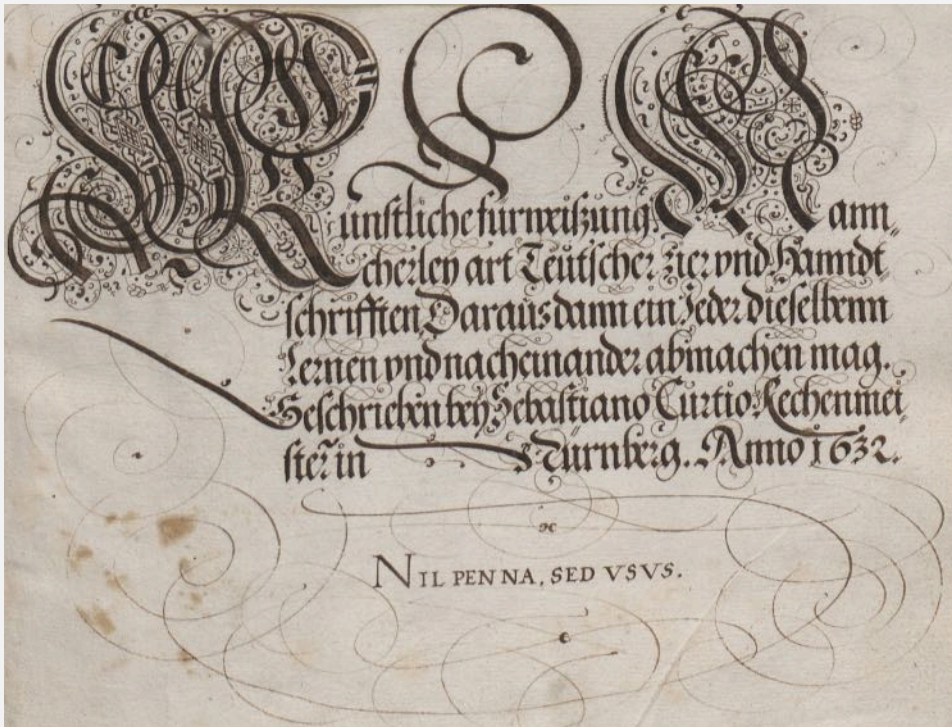 Künstliche fürweißung Mann„
cherley art Teütscher zier vnd Hanndt
schrifften Daraus dann ein Jeder dieselbenn
lernen vnd nacheinander abmachen mag.
Geschrieben bey Sebastiano Curtio Rechenmei
ster in Nürnberg. Anno 1632.
NIL PENNA, SED VSVS.